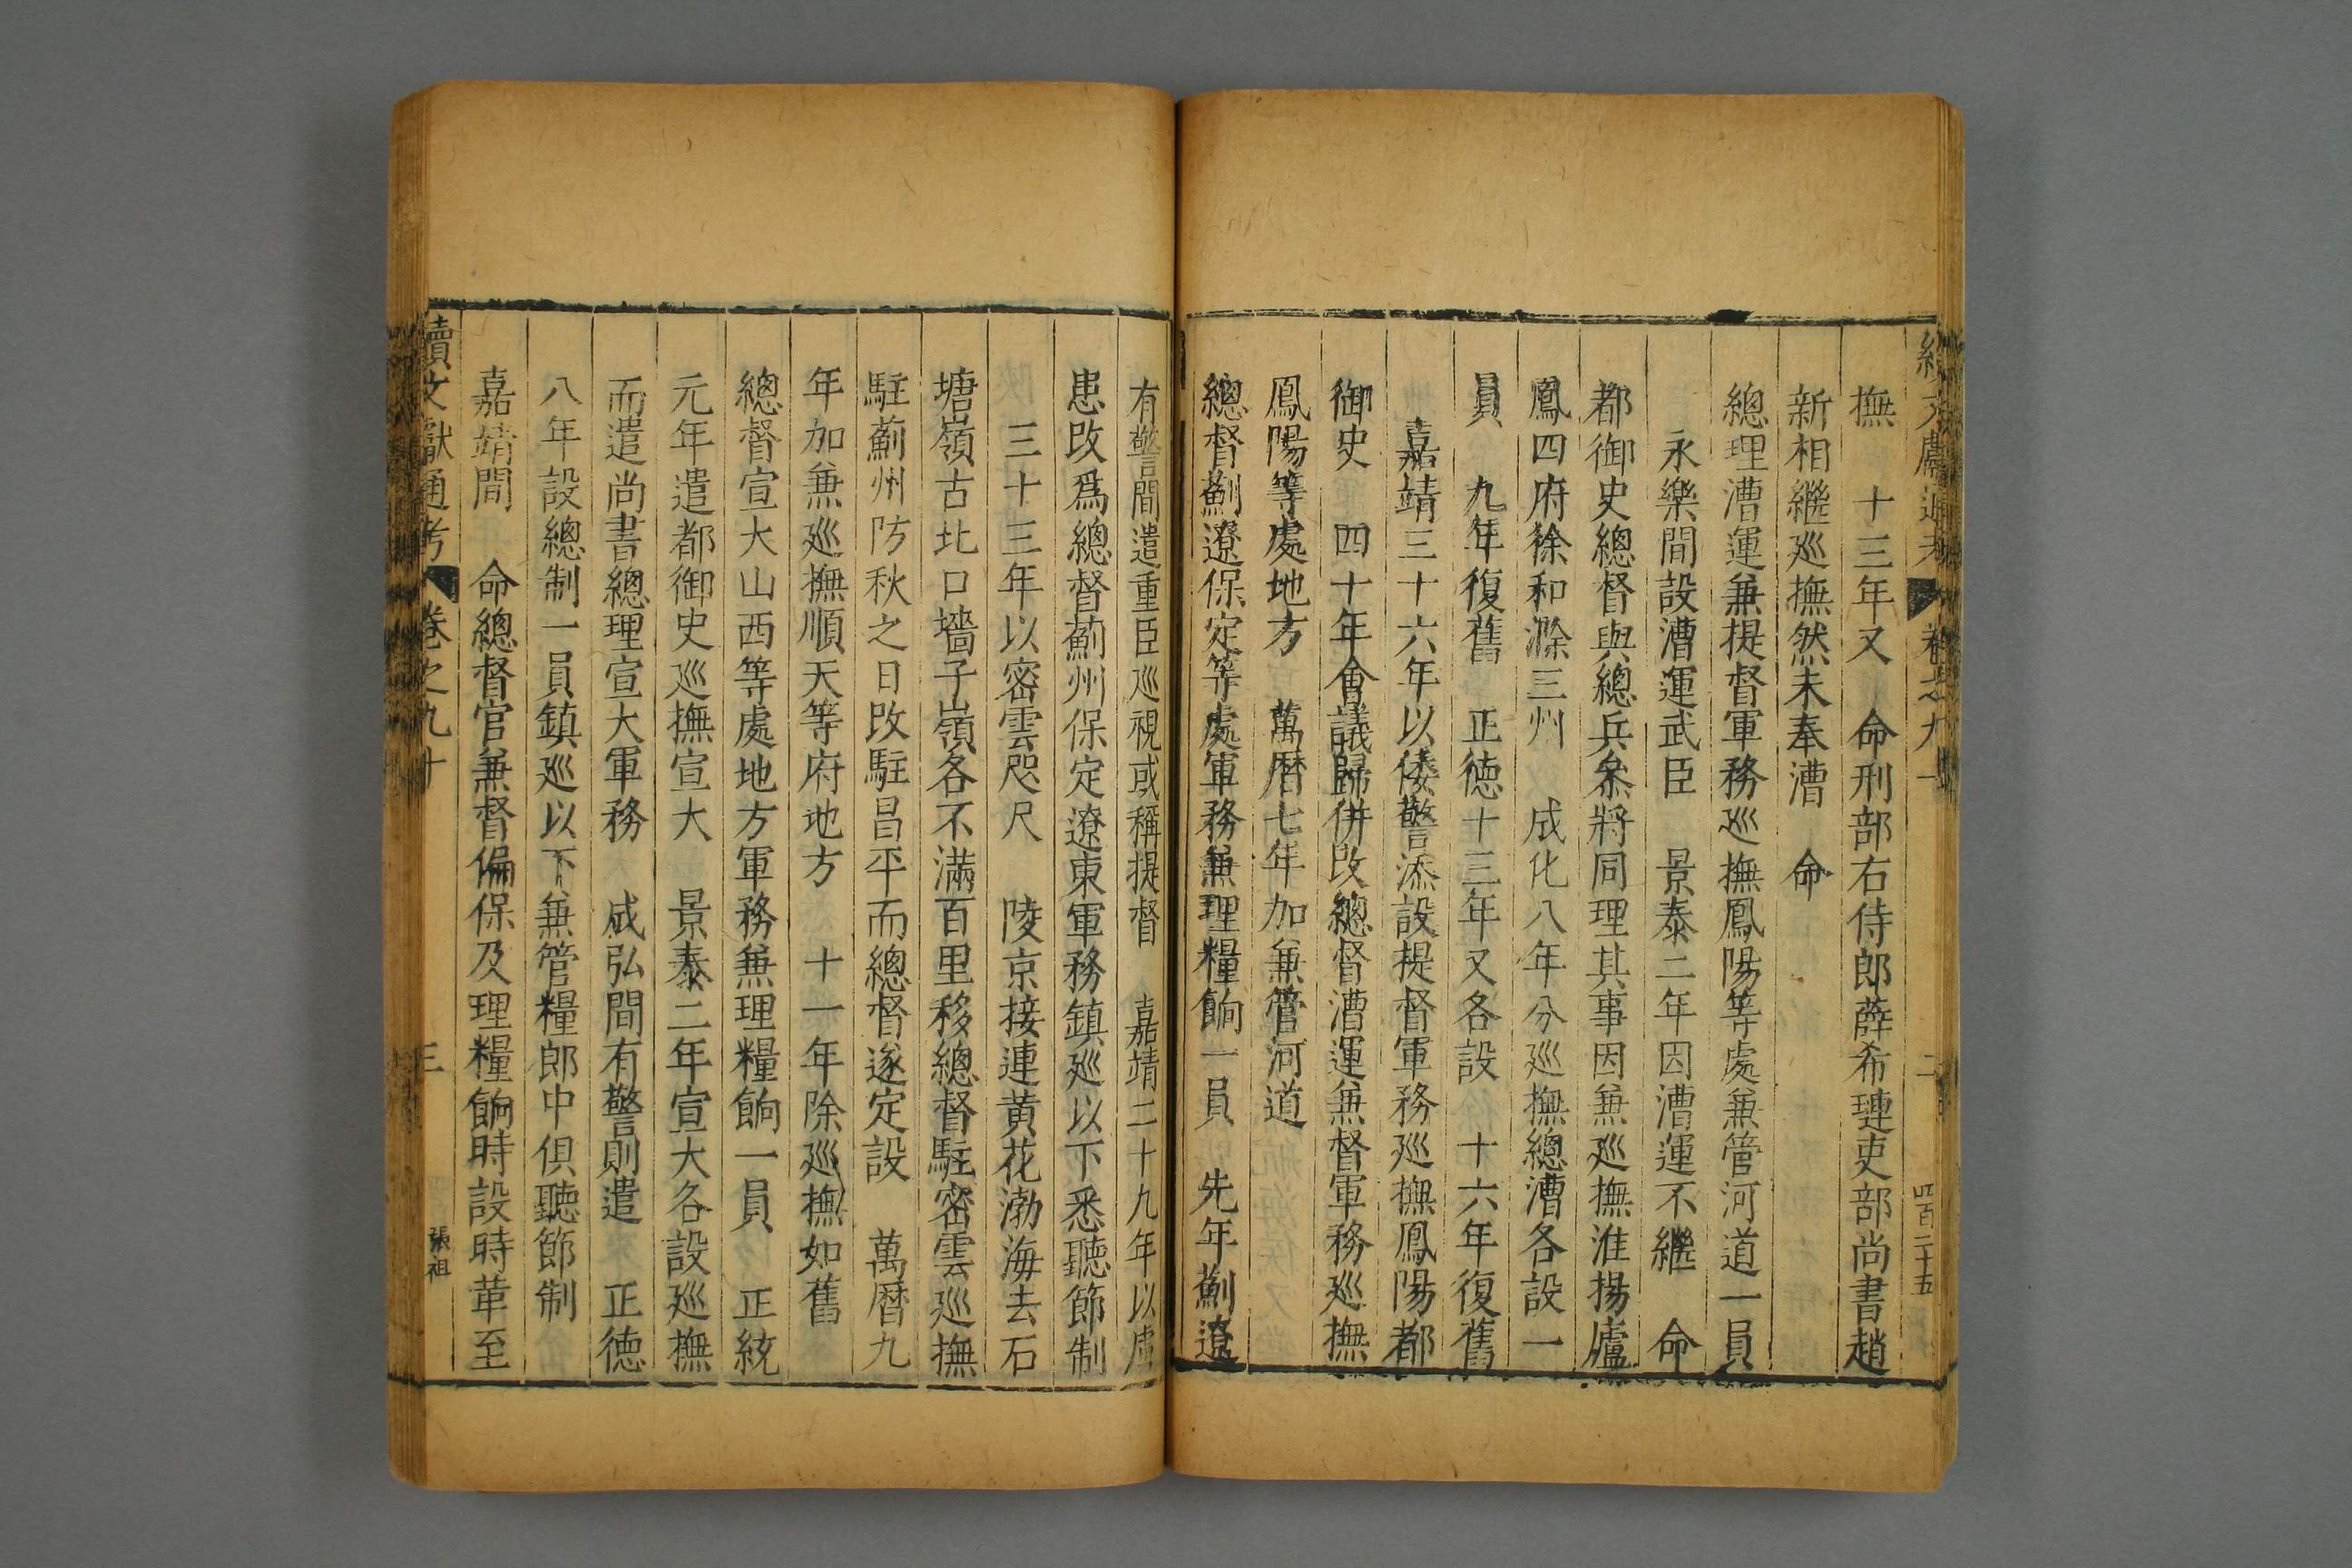 續文獻通考
卷之九十
二
四百二十五
撫　十三年又　命刑部右侍郎薛希璉吏部尚書趙
新相繼廵撫然未奉漕　命
總理漕運兼提督軍務廵撫鳳陽等處兼管河道一員
永樂間設漕運武臣　景泰二年因漕運不繼　命
都御史總督與總兵叅將同理其事因兼廵撫淮揚廬
鳳四府徐和滁三州　成化八年分廵撫總漕各設一
員　九年復舊　正德十三年又各設　十六年復舊
嘉靖三十六年以倭警添設提督軍務廵撫鳳陽都
御史　四十年會議歸併改總督漕運兼督軍務廵撫
鳳陽等處地方　萬曆七年加兼管河道
總督薊遼保定等處軍務兼理糧餉一員　先年薊遼
有警間遣重臣廵視或稱提督　嘉靖二十九年以虜
患改爲總督薊州保定遼東軍務鎮廵以下悉聽節制
三十三年以密雲咫尺　陵京接連黄花渤海去石
塘嶺古北口墻子嶺各不滿百里移總督駐密雲廵撫
駐薊州防秋之日改駐昌平而總督遂定設　萬曆九
年加兼廵撫順天等府地方　十一年除廵撫如舊
總督宣大山西等處地方軍務兼理糧餉一員　正統
元年遣都御史廵撫宣大　景泰二年宣大各設廵撫
而遣尚書總理宣大軍務　成弘間有警則遣　正德
八年設總制一員鎮廵以下兼管糧郎中俱聽節制
嘉靖間　命總督官兼督偏保及理糧餉時設時革至
續文獻通考
卷之九十
三
張祖